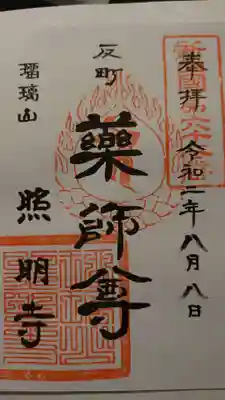 奉拝 令和二年八月八日
反町
藥師尊
瑠璃山
照明寺